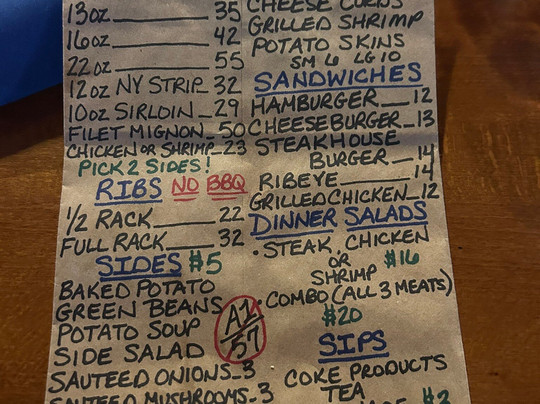 13oz 35
16oz 42
22oz 55
12oz NY STRIP 32
10oz SIRLOIN 29
FILET MIGNON 50
CHICKEN OR SHRIMP 23
PICK 2 SIDES!
RIBS NO BBQ
1/2 RACK 22
FULL RACK 32
SIDES $5
BAKED POTATO
GREEN BEANS
POTATO SOUP
SIDE SALAD
SAUTEED ONIONS 3
SAUTEED MUSHROOMS 3
A1
57
CHEESE CURDS
GRILLED SHRIMP
POTATO SKINS
SM 6 LG 10
SANDWICHES
HAMBURGER 12
CHEESEBURGER 13
STEAKHOUSE
BURGER 14
RIBEYE 14
GRILLED CHICKEN 12
DINNER SALADS
• STEAK, CHICKEN
OR
SHRIMP $16
• COMBO (ALL 3 MEATS)
$20
SIPS
COKE PRODUCTS
TEA
$2